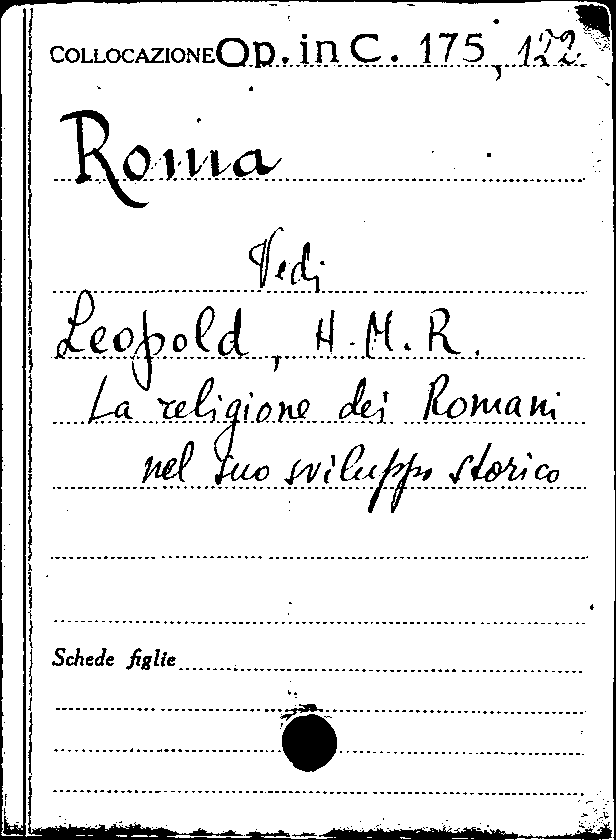 COLLOCAZIONE Op. in C. 175, 122
Roma
Vedi
Leopold, H. M. R.
La religione dei Romani
nel suo sviluppo storico
Schede figlie